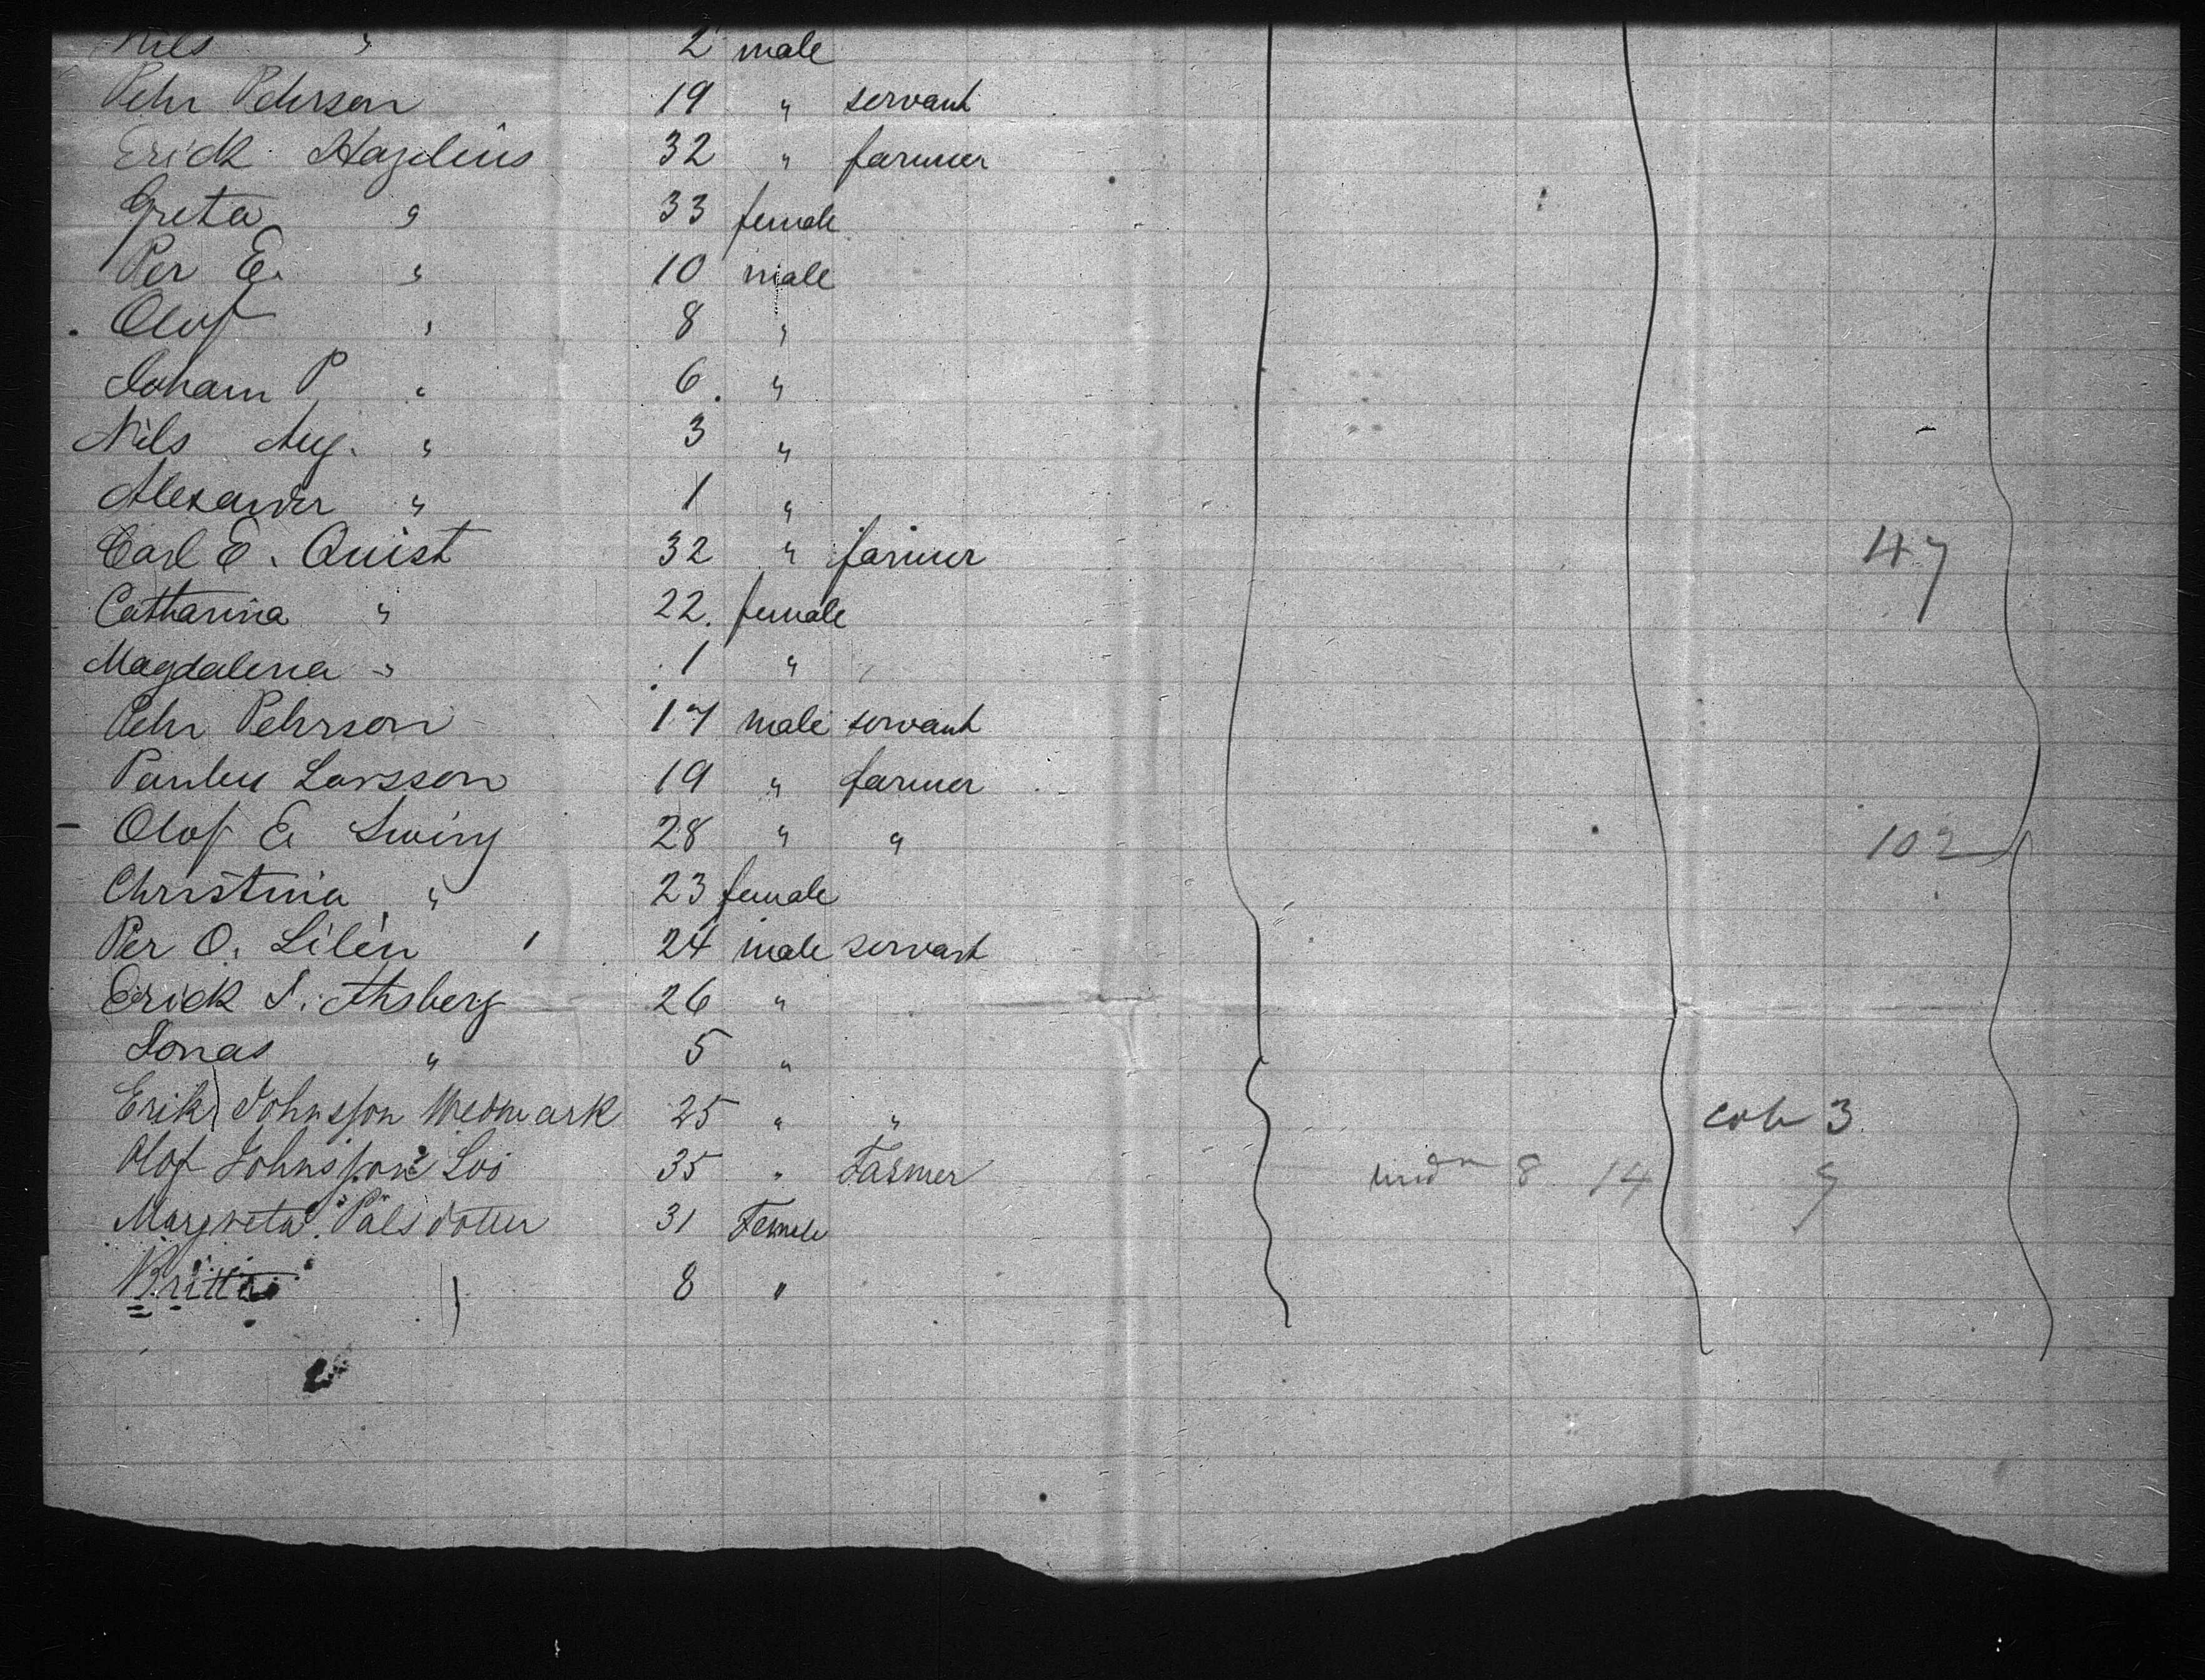 Nils " 2 male
Pehr Pehrson 19 " servant
Erick Hazelius 32 " farmer
Greta " 33 female
Per E. " 10 male
Olof " 8 "
Johann P. " 6 "
Nils Aug. " 3 "
Alexander " 1 "
Carl E. Quist 32 " farmer 47
Catharina " 22. female
Magdalena " 1 "
Pehr Pehrson 17 male servant
Larsson 19 " farmer
Olof E. Swing 28 " " 102
Christina " 23 female
Per O. Lilén 24 male servant
Erick J. Ahsberg 26 "
Jonas " 5 "
Erik Johnsson Wedmark 25 " " 3
Olof Johnsson Loo 35 " Farmer 8 14 9
Margreta Palsdotter 31 Female
Britta 8 "